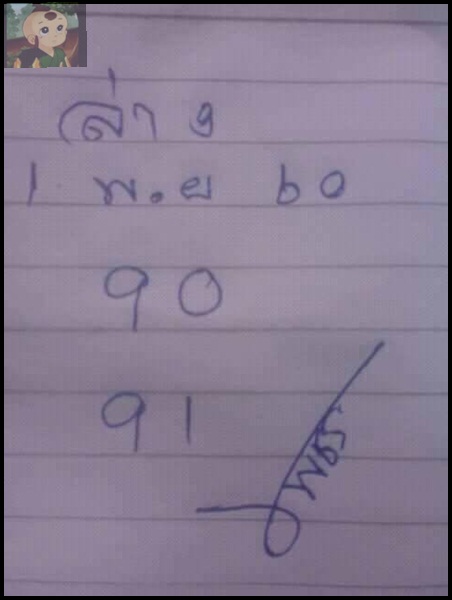 ล่าง
1 พ.ย 60
90
91
พชร